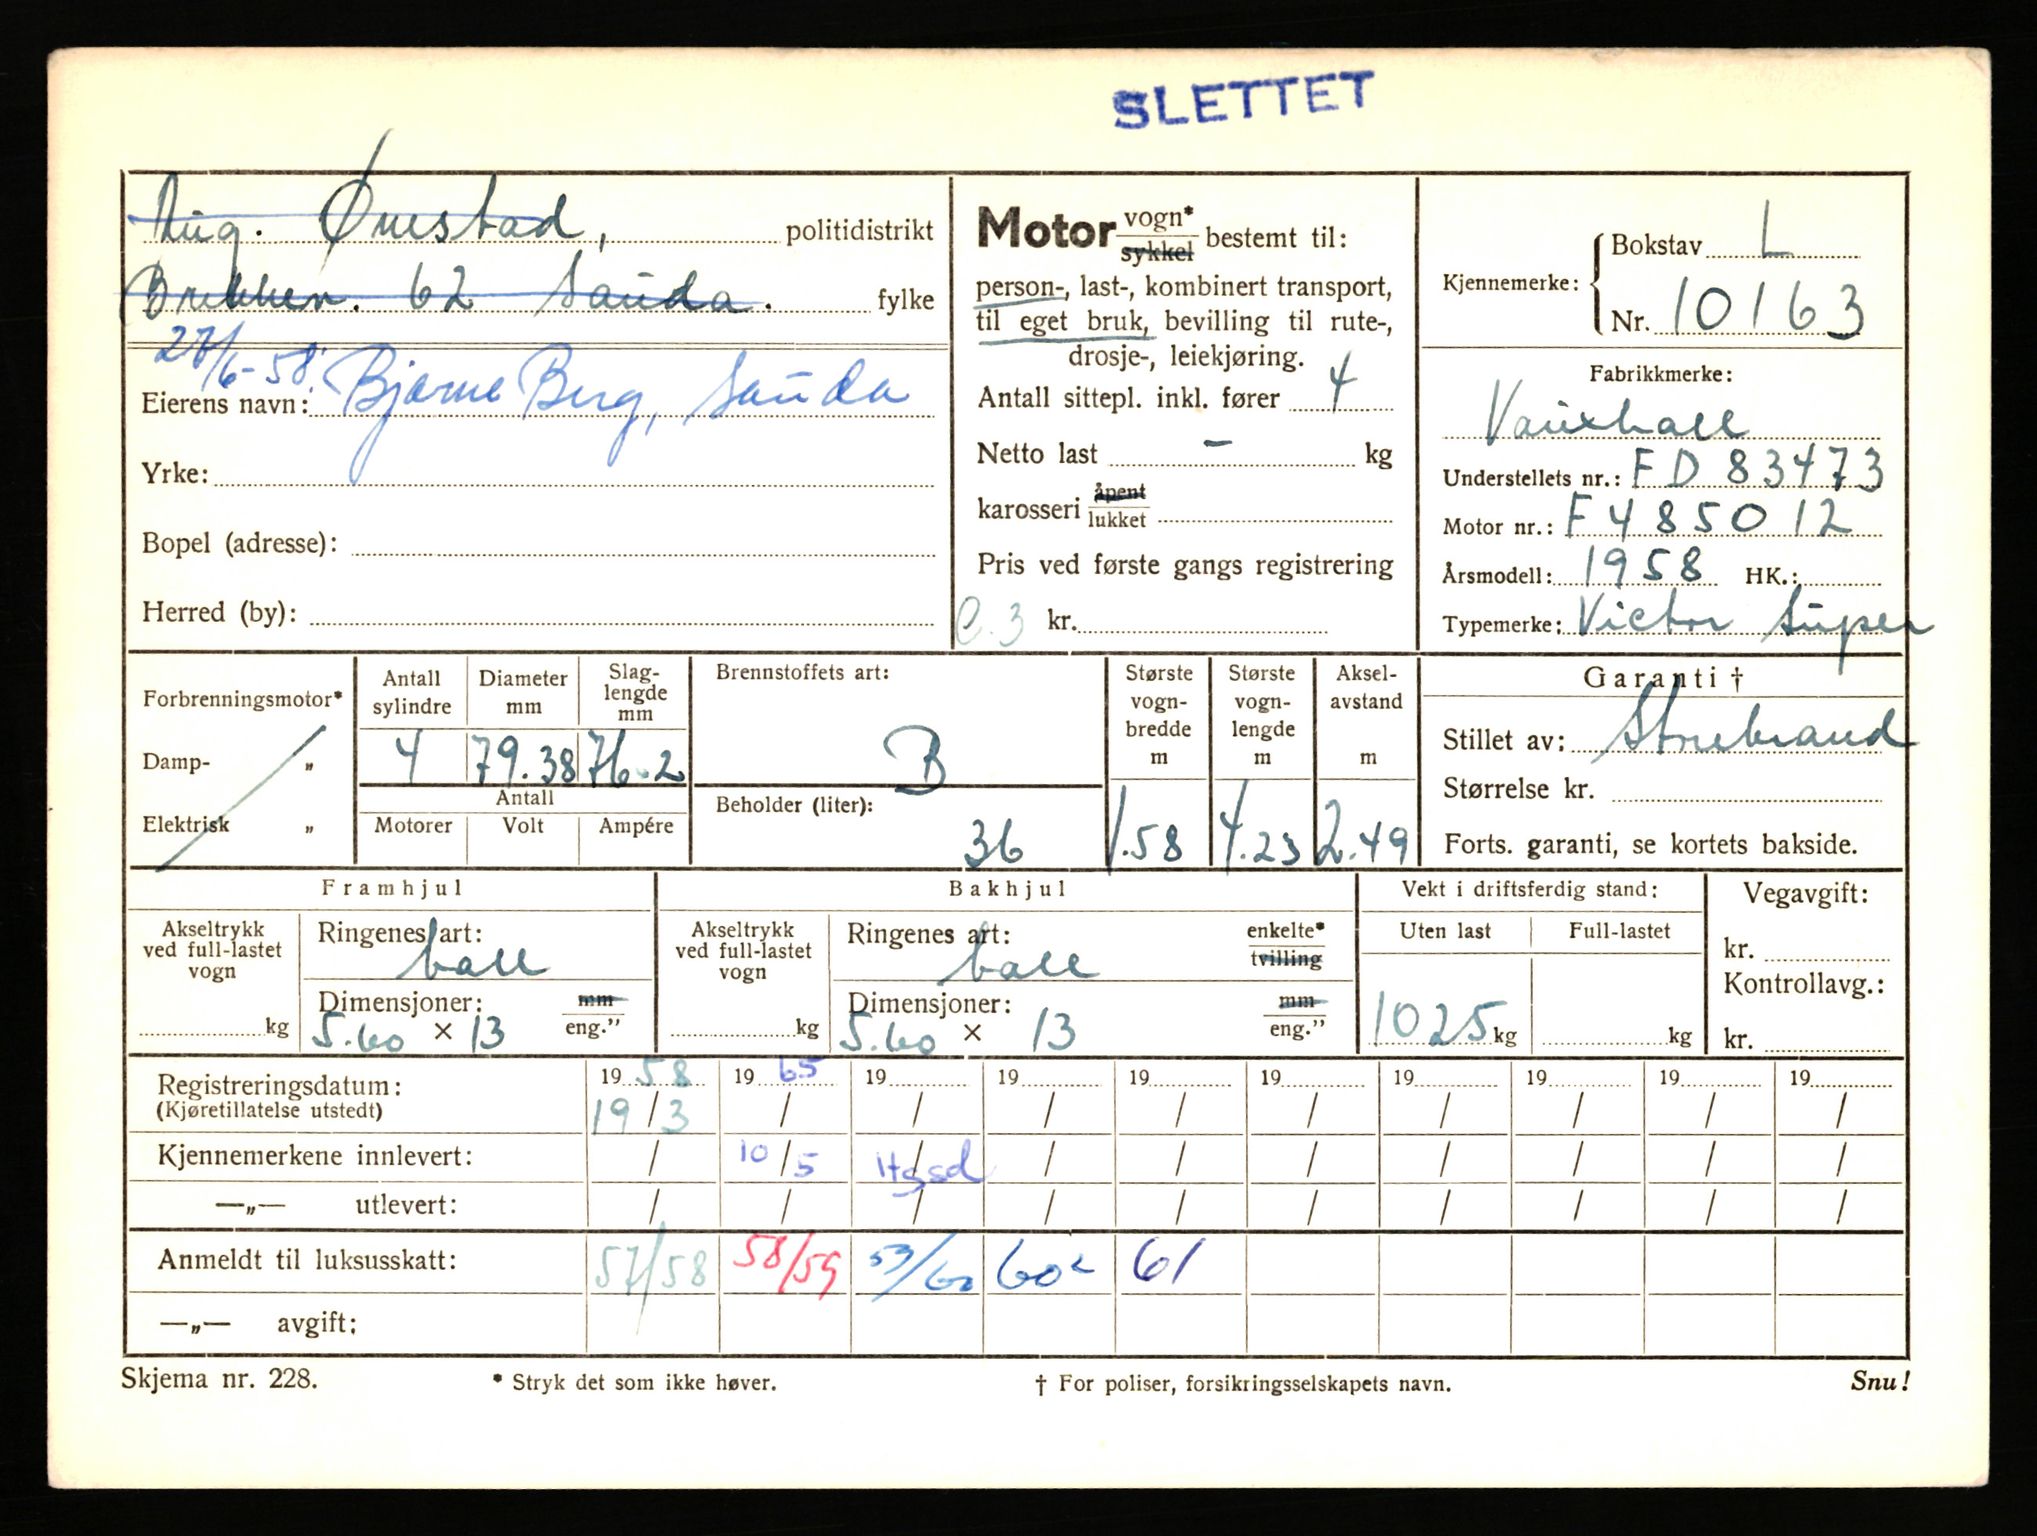 SLETTET
Aug. Ømstad, politidistrikt
Brekken. 62 Sauda. fylke
27/6-58. Eierens navn: Bjarne Berg, Sauda
Yrke:
Bopel (adresse):
Herred (by):
Motor vogn* sykkel bestemt til:
person-, last-, kombinert transport,
til eget bruk, bevilling til rute-,
drosje-, leiekjøring.
Antall sittepl. inkl. fører 4
Netto last – kg
karosseri åpent lukket
Pris ved første gangs registrering
C.3 kr.
Kjennemerke: Bokstav L
Nr. 10163
Fabrikkmerke:
Vauxhall
Understellets nr.: FD 83473
Motor nr.: F485012
Årsmodell: 1958 HK.:
Typemerke: Victor Super
Forbrenningsmotor*
Damp- „
Elektrisk „
Antall sylindre
4
Diameter mm
79.38
Slag-lengde mm
76.2
Antall
Motorer Volt Ampére
Brennstoffets art:
B
Beholder (liter):
36
Største vogn-bredde m
1.58
Største vogn-lengde m
4.23
Aksel-avstand m
2.49
Garanti †
Stillet av: Storebrand
Størrelse kr.
Forts. garanti, se kortets bakside.
Framhjul
Akseltrykk ved full-lastet vogn
kg
Ringenes art:
ball
Dimensjoner: mm
5.60 × 13 eng."
Bakhjul
Akseltrykk ved full-lastet vogn
kg
Ringenes art: enkelte* tvilling
ball
Dimensjoner: mm
5.60 × 13 eng."
Vekt i driftsferdig stand:
Uten last Full-lastet
1025 kg kg
Vegavgift:
kr.
Kontrollavg.:
kr.
Registreringsdatum: 19 58 19 65 19 19 19 19 19 19 19 19
(Kjøretillatelse utstedt) 19/3 / / / / / / / / /
Kjennemerkene innlevert: / 10/5 / / / / / / / /
—„— utlevert: / / / / / / / / / /
Anmeldt til luksusskatt: 57/58 58/59 59/60 60² 61
—„— avgift:
Skjema nr. 228. * Stryk det som ikke høver. † For poliser, forsikringsselskapets navn. Snu!